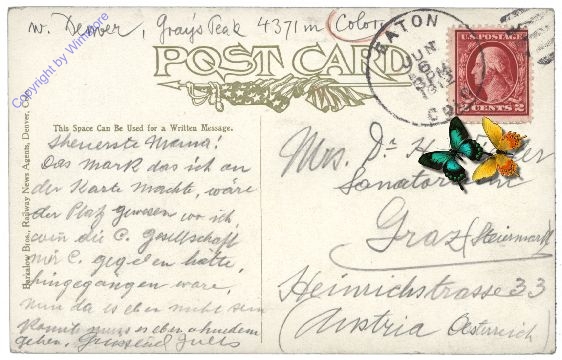 w. Denver, Gray's Peak 4371 m Color
POST CARD
EATON
JUN
6 PM
1913
COLO.
U.S. POSTAGE
2 CENTS 2
Copyright by Winshore
Barkalow Bros., Railway News Agents, Denver, Co
This Space Can Be Used for a Written Message.
Theuerste Mama!
Das Mark das ich an
der Karte machte, wäre
der Platz gewesen wo ich,
wenn die C. Gesellschaft
mir C. gegeben hätte,
hingegangen wäre,
nun da es aber nicht sein
konnte muss es eben ohnedem
gehen, Grüssend Jules
Mrs. Dr. H.
Sanatorium
Graz (Steiermark)
Heinrichstrasse 33
(Austria Oesterreich)